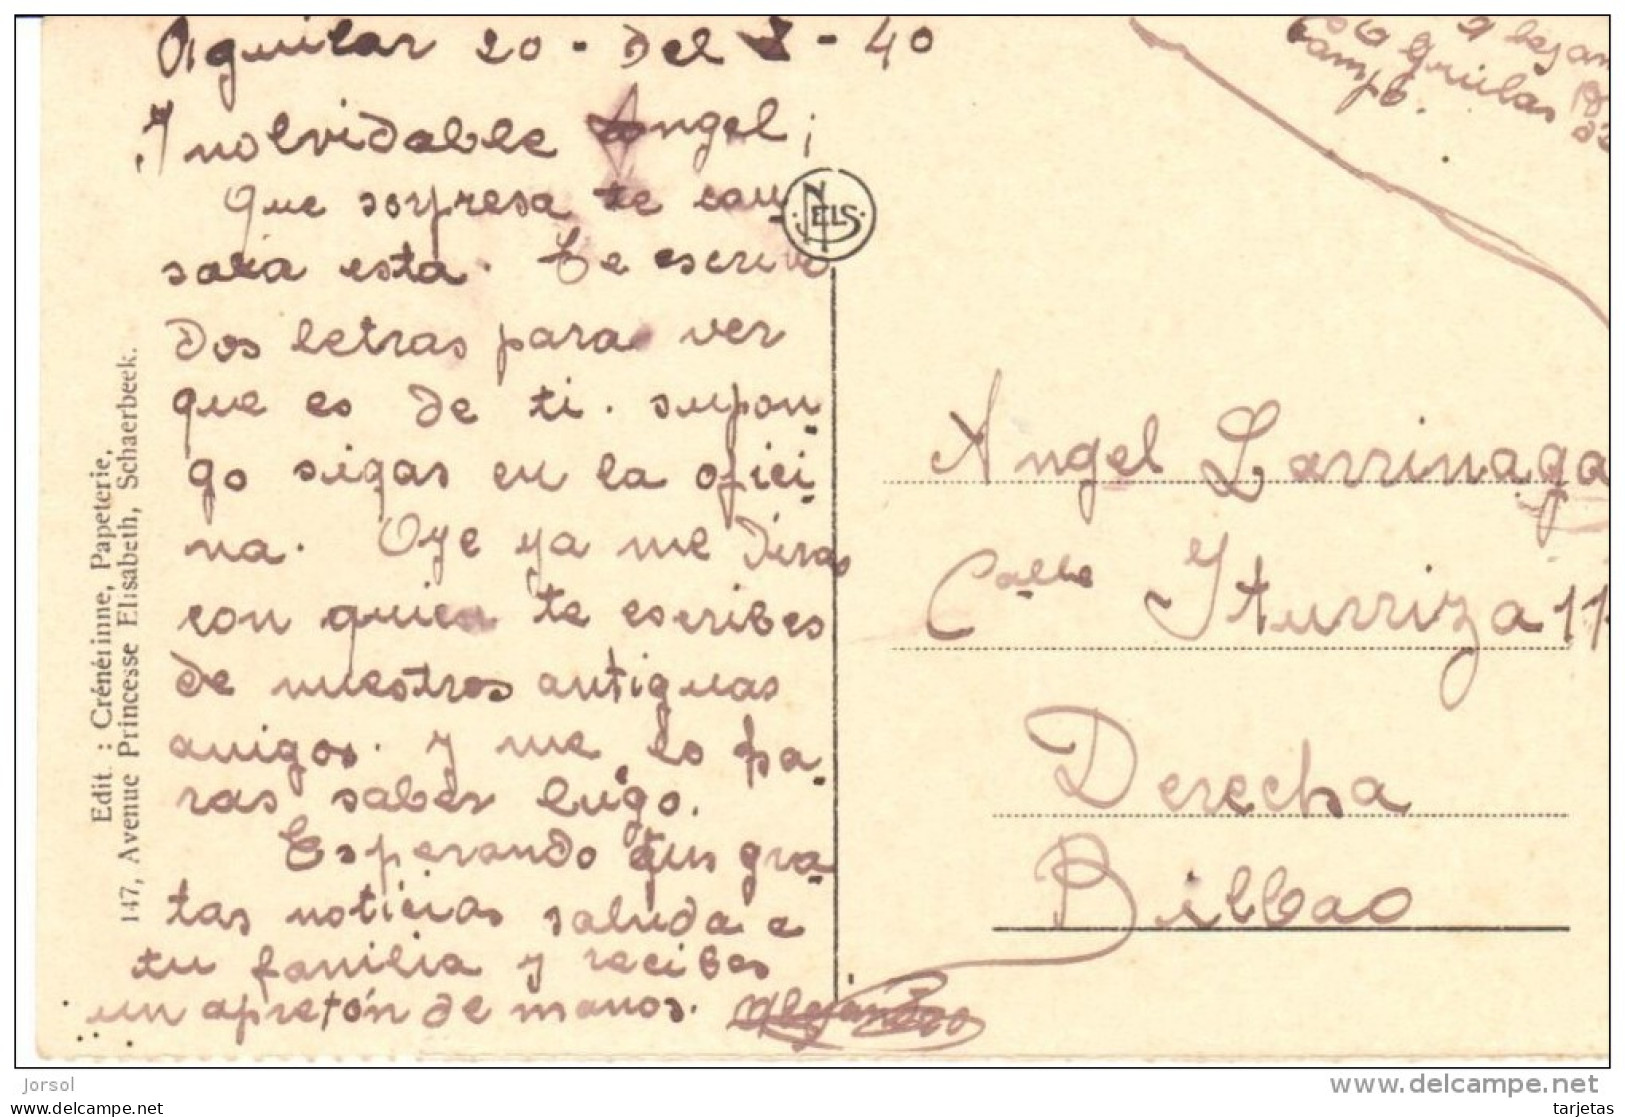 Aguilar 20 - Del - 40
Inolvidable Angel;
Que sorpresa te cau-
saria esta. Te escrivo
Dos letras para ver
que es de ti. supon-
go sigas en la ofici-
na. Oye ya me diras
con quien te escribes
de nuestros antiguas
amigos. y me lo ha-
ras saber luego.
Esperando tus gra-
tas noticias saluda a
tu familia y recibes
un apretón de manos. Alejandro
NELS
Edit. : Crénérinne, Papeterie,
147, Avenue Princesse Elisabeth, Schaerbeek.
Grulas
Campó.
Angel Larrinaga
Calle Iturriza 11
Derecha
Bilbao
Jorsol
www.delcampe.net
www.delcampe.com
tarjetas